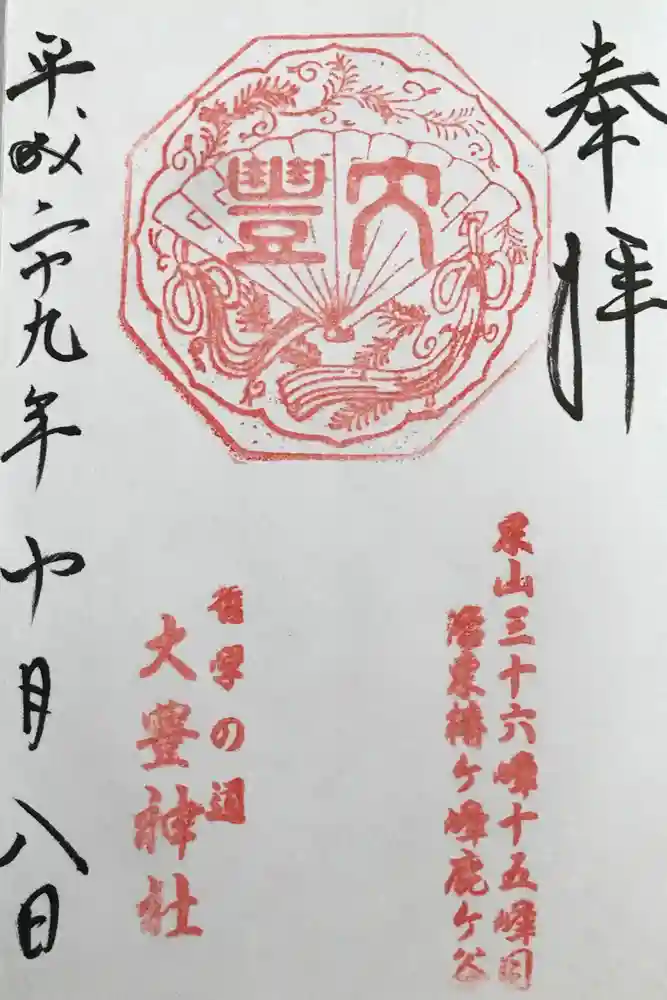 奉拝
大豊
東山三十六峰十五峰目
洛東椿ケ峰鹿ケ谷
哲学の道
大豊神社
平成二十九年十月八日